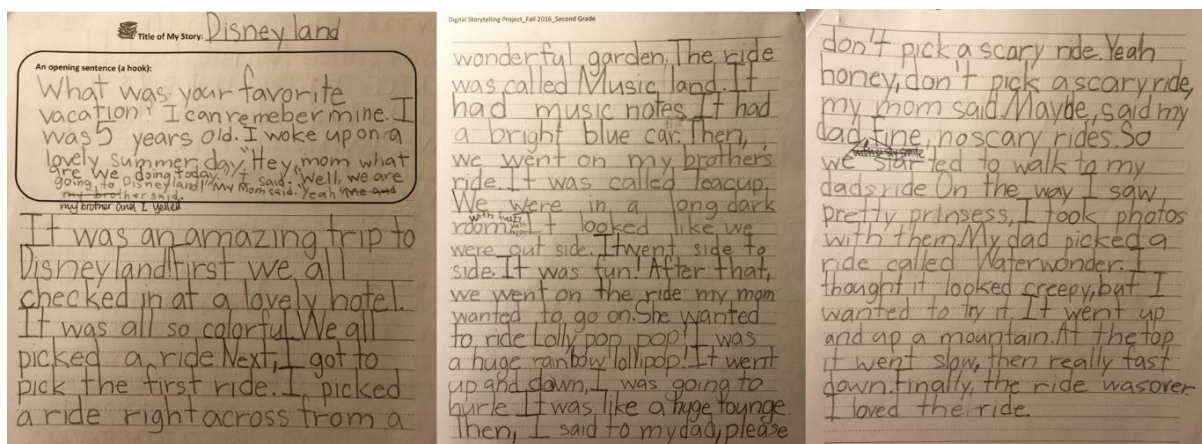 Title of My Story: Disneyland
An opening sentence (a hook):
What was your favorite
vacation? I can remeber mine. I
was 5 years old. I woke up on a
lovely summer day. "Hey, mom what
are we doing today." I said. "Well, we are
going to Disneyland!" My Mom said. "Yeah" me and
my brother said.
my brother and I yelled
It was an amazing trip to
Disneyland! First we all
checked in at a lovely hotel.
It was all so colorful. We all
picked a ride. Next, I got to
pick the first ride. I picked
a ride right across from a
Digital Storytelling Project_Fall 2016_Second Grade
wonderful garden. The ride
was called Music land. It
had music notes. It had
a bright blue car. Then,
we went on my brothers
ride. It was called Teacup.
We were in a long dark
with fuzzy
room. It looked like we
were out side. It went side to
side. It was fun! After that,
we went on the ride my mom
wanted to go on. She wanted
to ride Lolly pop pop! I was
a huge rainbow lollipop! It went
up and down, I was going to
hurle. It was like a huge tounge.
Then, I said to my dad, please
don't pick a scary ride. Yeah
honey, don't pick a scary ride,
my mom said. Maybe, said my
dad, fine, no scary rides. So
with a sly smile
we started to walk to my
dads ride. On the way I saw
pretty prinsess, I took photos
with them. My dad picked a
ride called Waterwonder. I
thought it looked creepy, but I
wanted to try it. It went up
and up a mountain. At the top
it went slow, then really fast
down. Finally, the ride was over.
I loved the ride.